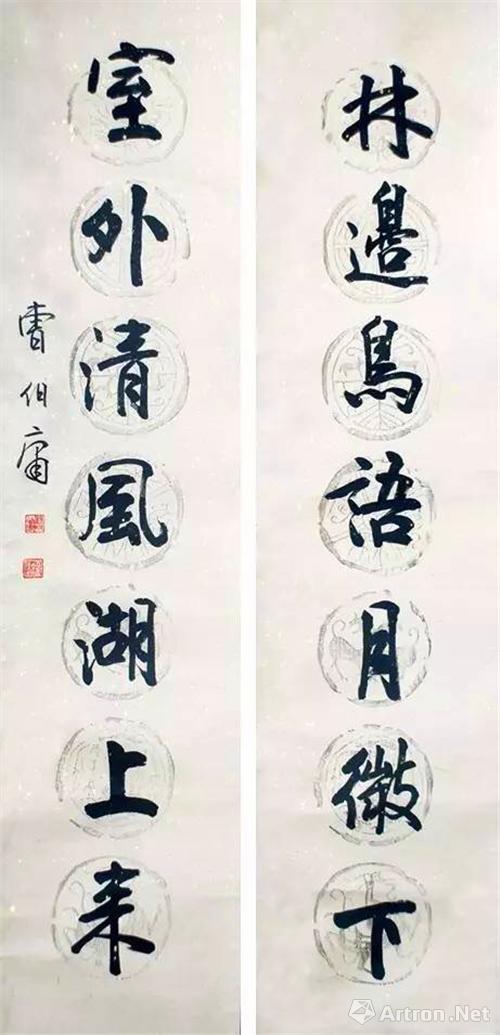 林邊鳥語月微下
室外清風湖上来
曹伯庸
Artron.Net